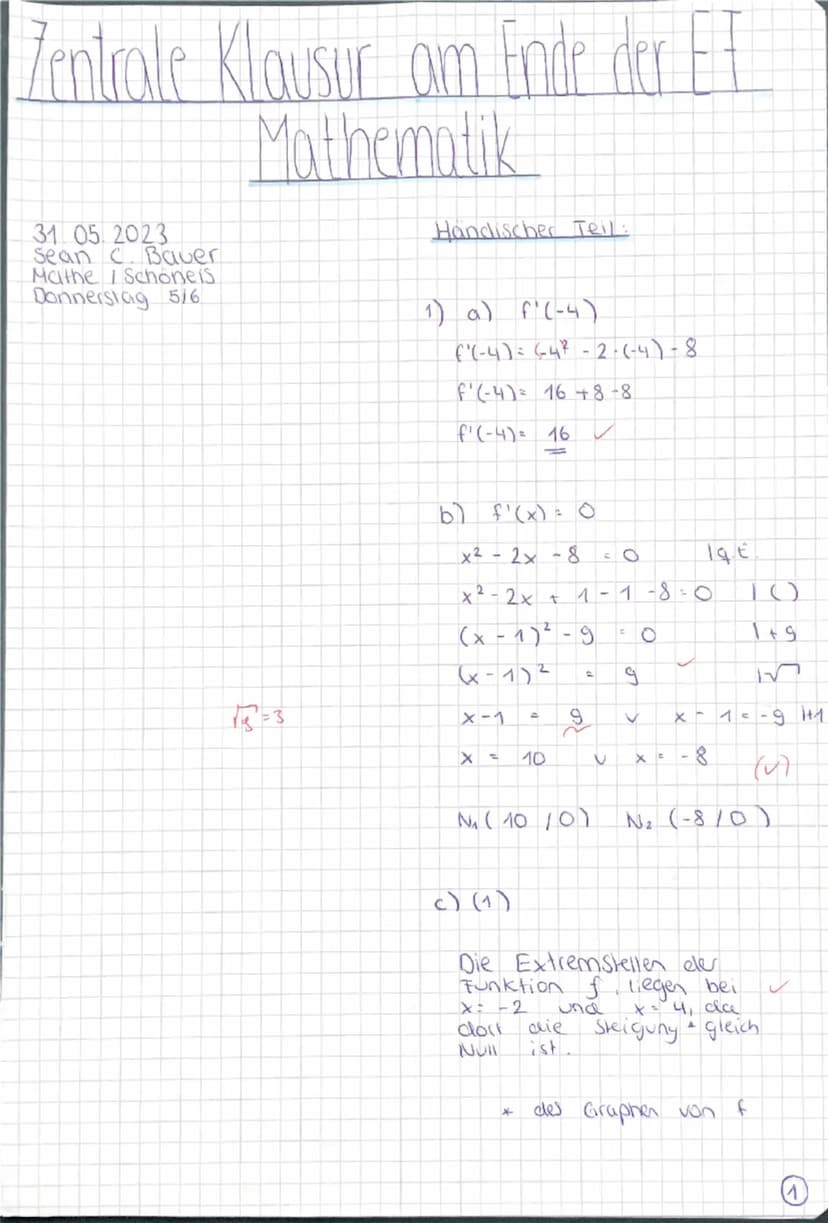 Zentrale Klausur am Ende der EF
Mathematik
31.05.2023
Sean C. Bauer
Mathe / Schöneis
Donnerstag 5/6
Händischer Teil:
1) a) f'(-4)
f'(-4) = (-4)² - 2·(-4) - 8
f'(-4) = 16 + 8 - 8
f'(-4) = 16 ✓
b) f'(x) = 0
x² - 2x - 8 = 0 | q.E.
x² - 2x + 1 - 1 - 8 = 0 | ()
(x - 1)² - 9 = 0 | + 9
(x - 1)² = 9 ✓ | √
√9 = 3
x - 1 = 9 v x - 1 = -9 | +1
x = 10 v x = -8 (✓)
N₁ (10 / 0) N₂ (-8 / 0)
c) (1)
Die Extremstellen der
Funktion f, liegen bei ✓
x = -2 und x = 4, da
dort die Steigung * gleich
Null ist.
* des Graphen von f
1